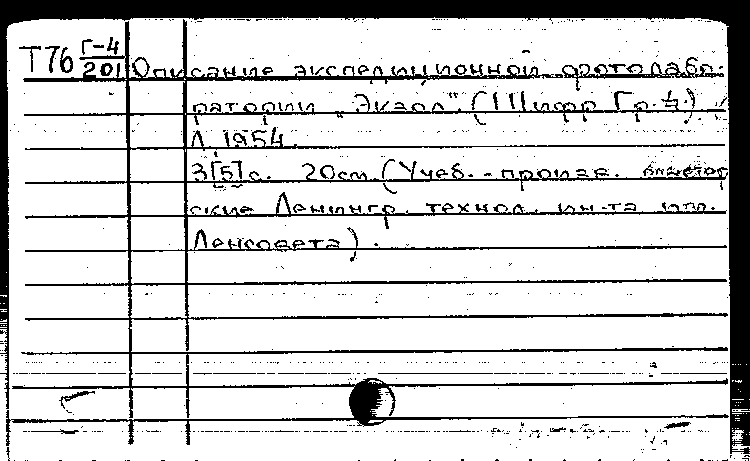 Т76 Г-4/201 Описание экспедиционной фотолабо-
ратории „Экзол". (Шифр Гр.4.)
Л. 1954.
3[5]с. 20см. (Учеб.-произв.
ские Ленингр. технол. ин-та им.
Ленсовета).